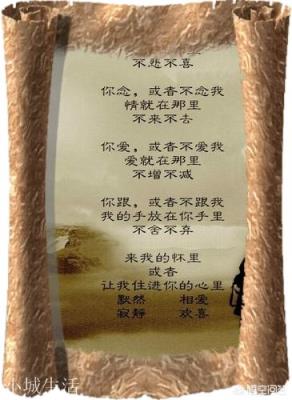 不悲不喜
你念，或者不念我
情就在那里
不来不去
你爱，或者不爱我
爱就在那里
不增不减
你跟，或者不跟我
我的手放在你手里
不舍不弃
来我的怀里
或者
让我住进你的心里
默然 相爱
寂静 欢喜
小城生活
悟空问答